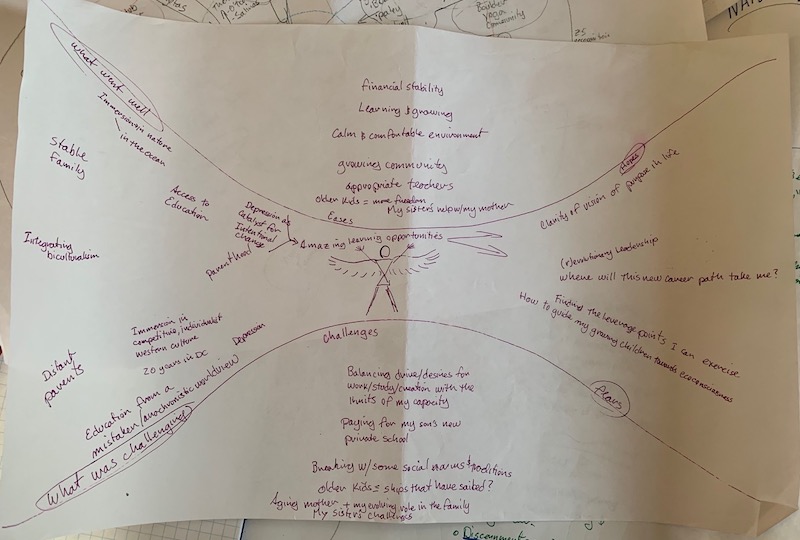 Buddhist
Yoga
Community
What went well
Immersion in nature
in the ocean
Stable
family
Access to
Education
Integrating
biculturalism
Depression as
Catalyst for
Intentional
Change
Parenthood
Financial stability
Learning & growing
Calm & comfortable environment
growing community
appropriate teachers
Older kids = more freedom
My sister's help w/my mother
Eases
Amazing learning opportunities
Hopes
Clarity of vision of purpose in life
(r)evolutionary leadership
where will this new career path take me?
Finding the leverage points I can exercise
How to guide my growing children through ecoconsciousness
fears
Challenges
Balancing drive/desires for
work/study/creation with the
limits of my capacity
paying for my son's new
private school
Breaking w/some social norms & traditions
Older kids = ships that have sailed?
Aging mother + my evolving role in the family
My sister's challenges
Immersion in
competitive, individualist
western culture
20 years in DC
Depression
Distant
parents
Education from a
mistaken/anachronistic worldview
What was challenging
Discernment